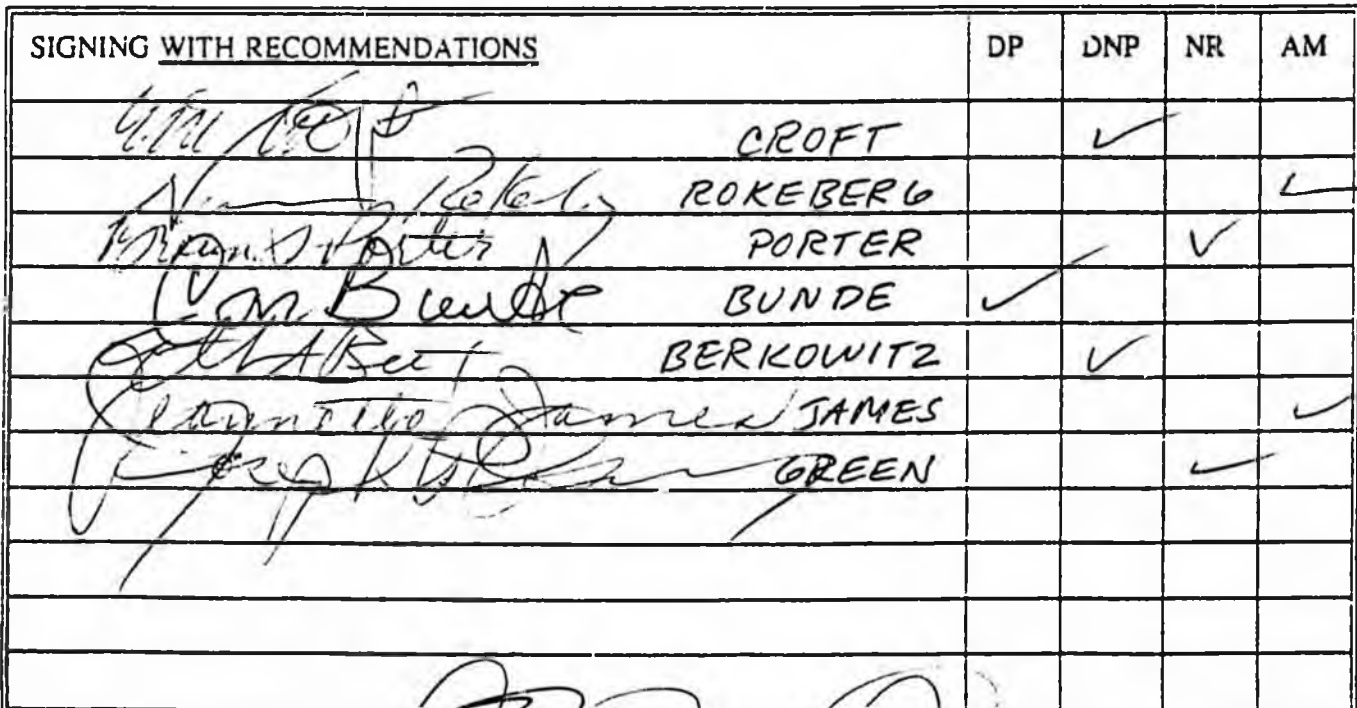 SIGNING WITH RECOMMENDATIONS DP DNP NR AM
CROFT ✓
Rokeberg ROKEBERG ✓
Brian S Porter PORTER ✓
Con Bunde BUNDE ✓
BERKOWITZ ✓
Jeannette James JAMES ✓
GREEN ✓